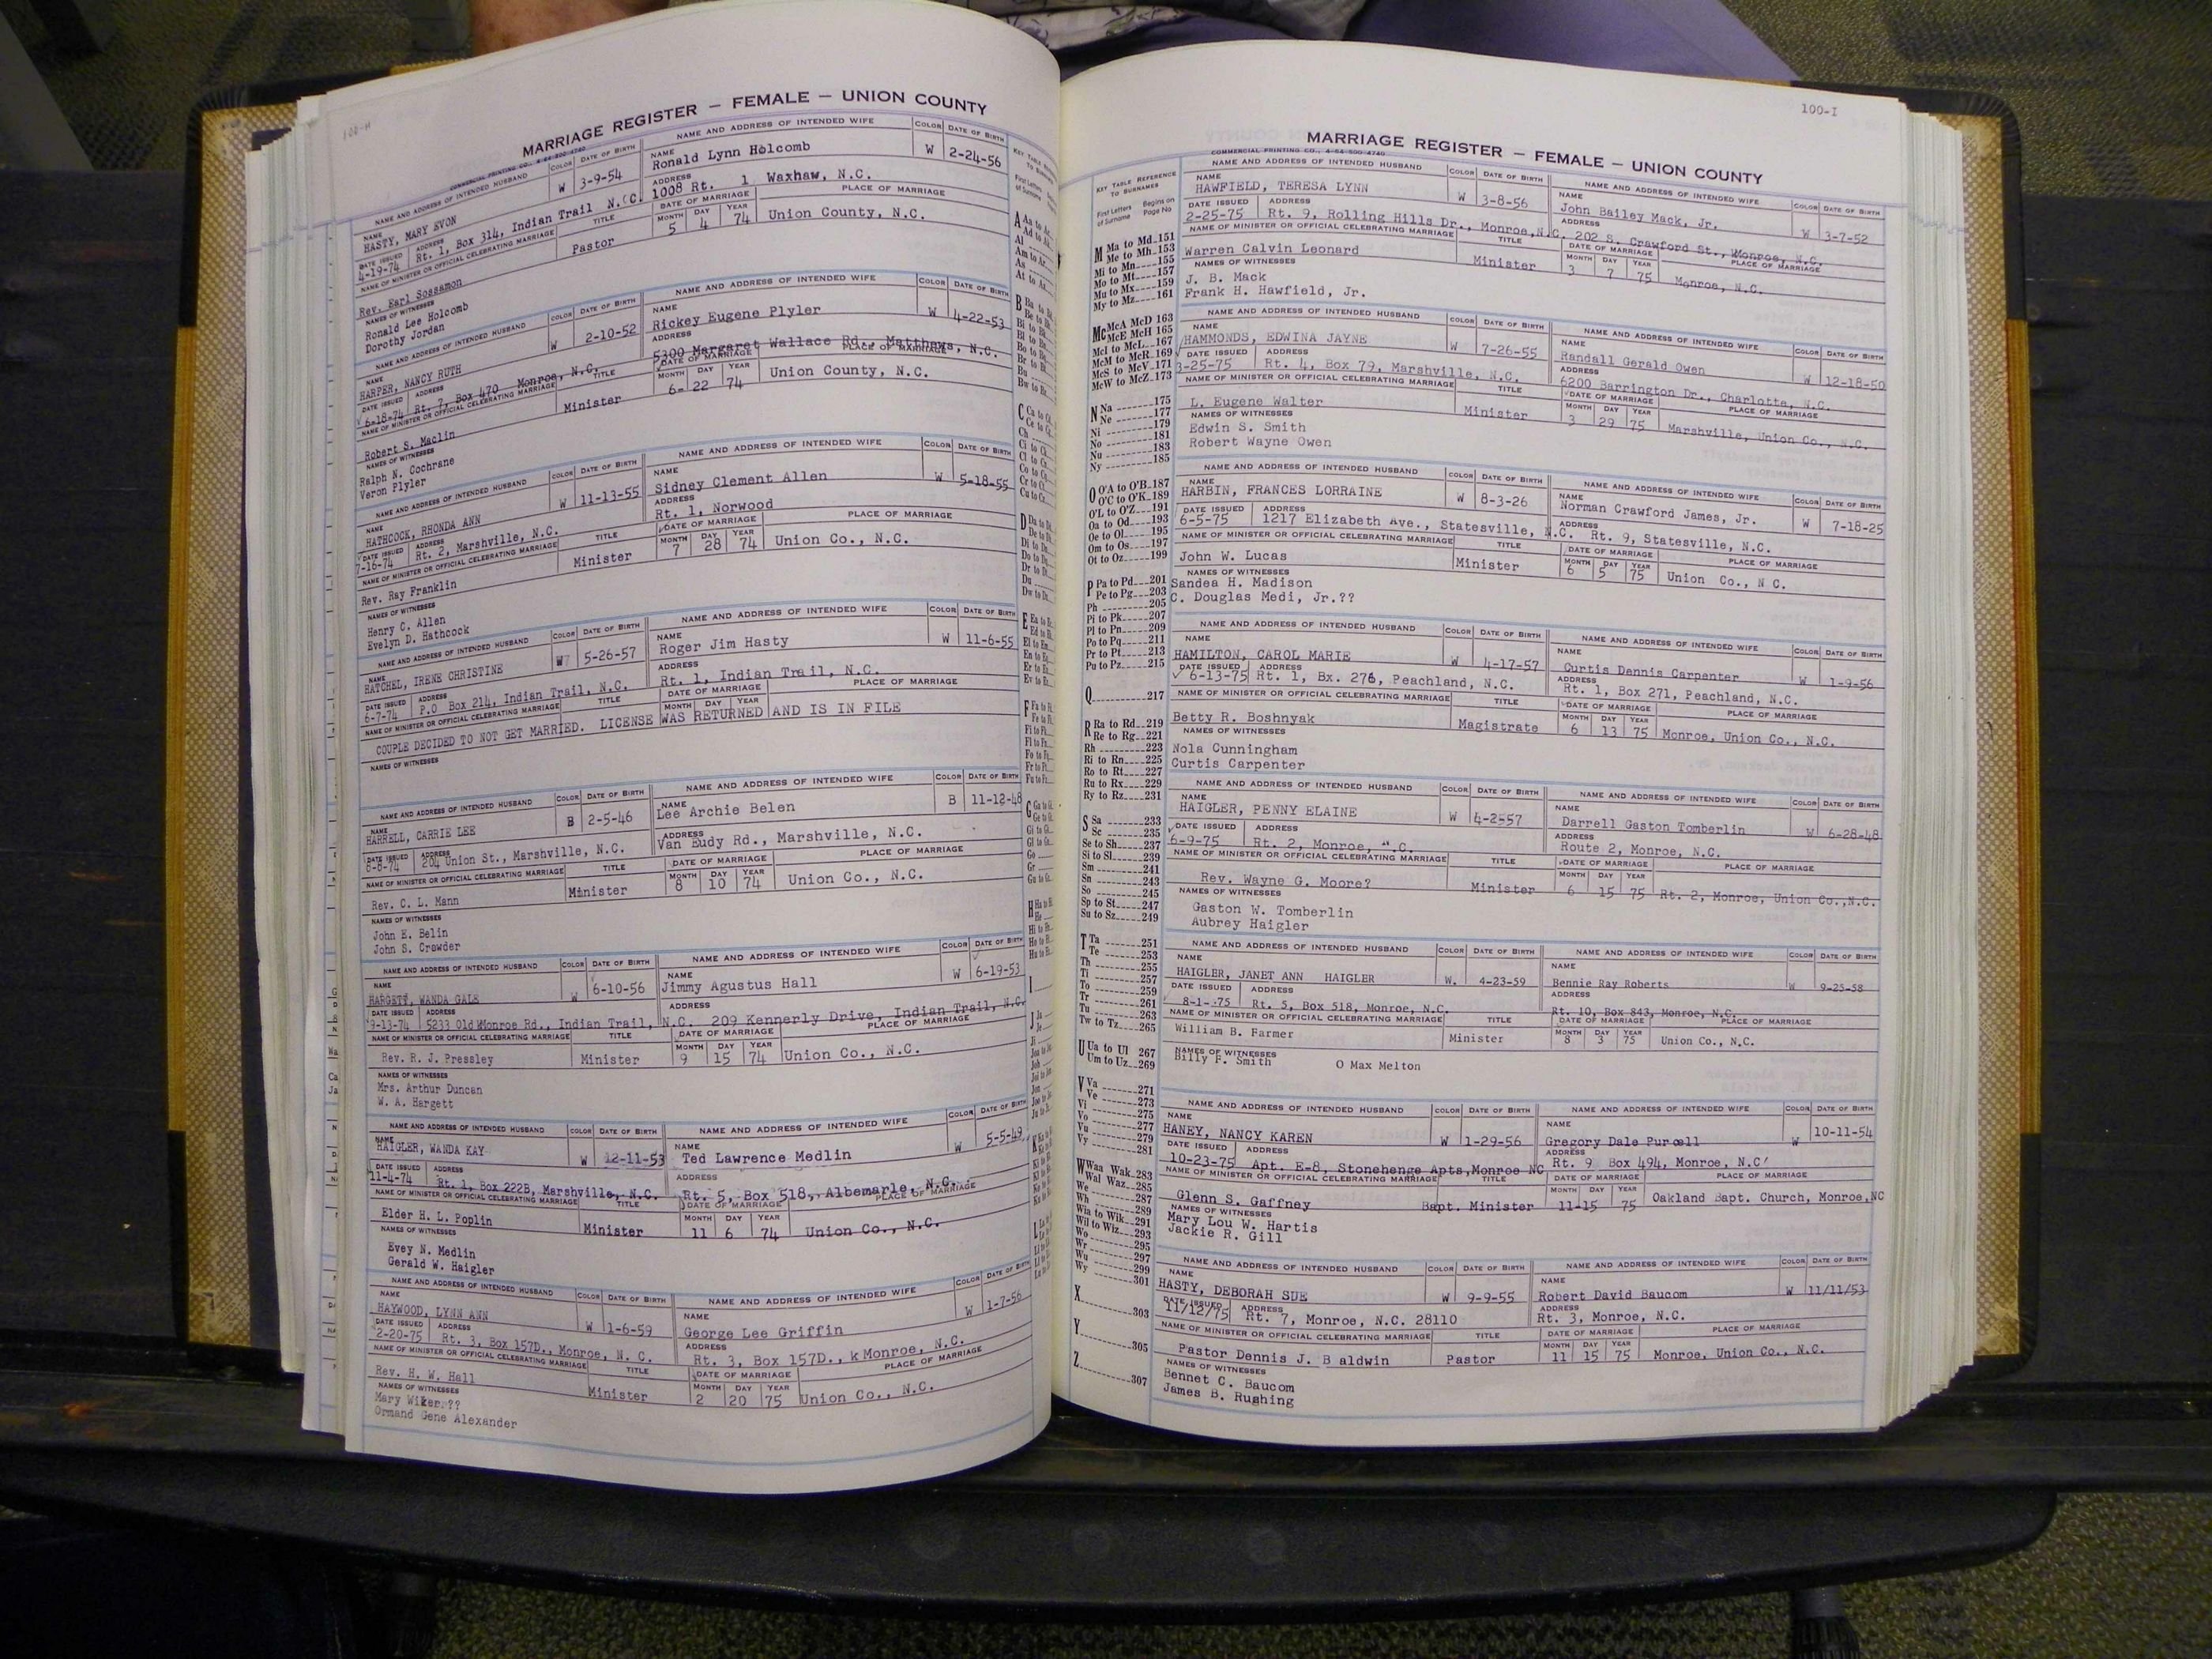 100-H
MARRIAGE REGISTER — FEMALE — UNION COUNTY
COMMERCIAL PRINTING CO., 4-64-500-4740
NAME AND ADDRESS OF INTENDED HUSBAND COLOR DATE OF BIRTH NAME AND ADDRESS OF INTENDED WIFE COLOR DATE OF BIRTH
NAME HASTY, MARY EVON W 3-9-54 NAME Ronald Lynn Holcomb W 2-24-56
DATE ISSUED 4-19-74 ADDRESS Rt. 1, Box 314, Indian Trail N.C. ADDRESS 1008 Rt. 1 Waxhaw, N.C.
NAME OF MINISTER OR OFFICIAL CELEBRATING MARRIAGE TITLE DATE OF MARRIAGE PLACE OF MARRIAGE
Rev. Earl Sossamon Pastor MONTH 5 DAY 4 YEAR 74 Union County, N.C.
NAMES OF WITNESSES
Ronald Lee Holcomb
Dorothy Jordan
NAME AND ADDRESS OF INTENDED HUSBAND COLOR DATE OF BIRTH NAME AND ADDRESS OF INTENDED WIFE COLOR DATE OF BIRTH
NAME HARPER, NANCY RUTH W 2-10-52 NAME Rickey Eugene Plyler W 4-22-53
DATE ISSUED 6-18-74 ADDRESS Rt. 7, Box 470 Monroe, N.C. ADDRESS 5300 Margaret Wallace Rd., Matthews, N.C.
NAME OF MINISTER OR OFFICIAL CELEBRATING MARRIAGE TITLE DATE OF MARRIAGE PLACE OF MARRIAGE
Robert S. Maclin Minister MONTH 6- DAY 22 YEAR 74 Union County, N.C.
NAMES OF WITNESSES
Ralph N. Cochrane
Veron Plyler
NAME AND ADDRESS OF INTENDED HUSBAND COLOR DATE OF BIRTH NAME AND ADDRESS OF INTENDED WIFE COLOR DATE OF BIRTH
NAME HATHCOCK, RHONDA ANN W 11-13-55 NAME Sidney Clement Allen W 5-18-55
DATE ISSUED 7-16-74 ADDRESS Rt. 2, Marshville, N.C. ADDRESS Rt. 1, Norwood
NAME OF MINISTER OR OFFICIAL CELEBRATING MARRIAGE TITLE DATE OF MARRIAGE PLACE OF MARRIAGE
Rev. Ray Franklin Minister MONTH 7 DAY 28 YEAR 74 Union Co., N.C.
NAMES OF WITNESSES
Henry C. Allen
Evelyn D. Hathcock
NAME AND ADDRESS OF INTENDED HUSBAND COLOR DATE OF BIRTH NAME AND ADDRESS OF INTENDED WIFE COLOR DATE OF BIRTH
NAME HATCHEL, IRENE CHRISTINE W 5-26-57 NAME Roger Jim Hasty W 11-6-55
DATE ISSUED 6-7-74 ADDRESS P.O Box 214, Indian Trail, N.C. ADDRESS Rt. 1, Indian Trail, N.C.
NAME OF MINISTER OR OFFICIAL CELEBRATING MARRIAGE TITLE DATE OF MARRIAGE MONTH DAY YEAR PLACE OF MARRIAGE
COUPLE DECIDED TO NOT GET MARRIED. LICENSE WAS RETURNED AND IS IN FILE
NAMES OF WITNESSES
NAME AND ADDRESS OF INTENDED HUSBAND COLOR DATE OF BIRTH NAME AND ADDRESS OF INTENDED WIFE COLOR DATE OF BIRTH
NAME HARRELL, CARRIE LEE B 2-5-46 NAME Lee Archie Belen B 11-12-48
DATE ISSUED 8-8-74 ADDRESS 204 Union St., Marshville, N.C. ADDRESS Van Eudy Rd., Marshville, N.C.
NAME OF MINISTER OR OFFICIAL CELEBRATING MARRIAGE TITLE DATE OF MARRIAGE PLACE OF MARRIAGE
Rev. C. L. Mann Minister MONTH 8 DAY 10 YEAR 74 Union Co., N.C.
NAMES OF WITNESSES
John E. Belin
John S. Crowder
NAME AND ADDRESS OF INTENDED HUSBAND COLOR DATE OF BIRTH NAME AND ADDRESS OF INTENDED WIFE COLOR DATE OF BIRTH
NAME HARGETT, WANDA GALE W 6-10-56 NAME Jimmy Agustus Hall W 6-19-53
DATE ISSUED 9-13-74 ADDRESS 5233 Old Monroe Rd., Indian Trail, N.C. ADDRESS 209 Kennerly Drive, Indian Trail, N.C.
NAME OF MINISTER OR OFFICIAL CELEBRATING MARRIAGE TITLE DATE OF MARRIAGE PLACE OF MARRIAGE
Rev. R. J. Pressley Minister MONTH 9 DAY 15 YEAR 74 Union Co., N.C.
NAMES OF WITNESSES
Mrs. Arthur Duncan
W. A. Hargett
NAME AND ADDRESS OF INTENDED HUSBAND COLOR DATE OF BIRTH NAME AND ADDRESS OF INTENDED WIFE COLOR DATE OF BIRTH
NAME HAIGLER, WANDA KAY W 12-11-53 NAME Ted Lawrence Medlin W 5-5-49
DATE ISSUED 11-4-74 ADDRESS Rt. 1, Box 222B, Marshville, N.C. ADDRESS Rt. 5, Box 518, Albemarle, N.C.
NAME OF MINISTER OR OFFICIAL CELEBRATING MARRIAGE TITLE DATE OF MARRIAGE PLACE OF MARRIAGE
Elder H. L. Poplin Minister MONTH 11 DAY 6 YEAR 74 Union Co., N.C.
NAMES OF WITNESSES
Evey N. Medlin
Gerald W. Haigler
NAME AND ADDRESS OF INTENDED HUSBAND COLOR DATE OF BIRTH NAME AND ADDRESS OF INTENDED WIFE COLOR DATE OF BIRTH
NAME HAYWOOD, LYNN ANN W 1-6-59 NAME George Lee Griffin W 1-7-56
DATE ISSUED 2-20-75 ADDRESS Rt. 3, Box 157D., Monroe, N. C. ADDRESS Rt. 3, Box 157D., k Monroe, N.C.
NAME OF MINISTER OR OFFICIAL CELEBRATING MARRIAGE TITLE DATE OF MARRIAGE PLACE OF MARRIAGE
Rev. H. W. Hall Minister MONTH 2 DAY 20 YEAR 75 Union Co., N.C.
NAMES OF WITNESSES
Mary Wiker??
Ormand Gene Alexander
100-I
MARRIAGE REGISTER — FEMALE — UNION COUNTY
COMMERCIAL PRINTING CO., 4-64-500-4740
KEY TABLE REFERENCE TO SURNAMES
First Letters of Surname Begins on Page No
M Ma to Md 151
Me to Mh 153
Mi to Mn 155
Mo to Mt 157
Mu to Mx 159
My to Mz 161
Mc McA McD 163
McE McH 165
McI to McL 167
McM to McR 169
McS to McV 171
McW to McZ 173
N Na 175
Ne 177
Ni 179
No 181
Nu 183
Ny 185
O O'A to O'B 187
O'C to O'K 189
O'L to O'Z 191
Oa to Od 193
Oe to Ol 195
Om to Os 197
Ot to Oz 199
P Pa to Pd 201
Pe to Pg 203
Ph 205
Pi to Pk 207
Pl to Pn 209
Po to Pq 211
Pr to Pt 213
Pu to Pz 215
Q 217
R Ra to Rd 219
Re to Rg 221
Rh 223
Ri to Rn 225
Ro to Rt 227
Ru to Rx 229
Ry to Rz 231
S Sa 233
Sc 235
Se to Sh 237
Si to Sl 239
Sm 241
Sn 243
So 245
Sp to St 247
Su to Sz 249
T Ta 251
Te 253
Th 255
Ti 257
To 259
Tr 261
Tu 263
Tw to Tz 265
U Ua to Ul 267
Um to Uz 269
V Va 271
Ve 273
Vi 275
Vo 277
Vu 279
Vy 281
W Waa Wak 283
Wal Waz 285
We 287
Wh 289
Wia to Wik 291
Wil to Wiz 293
Wo 295
Wr 297
Wu 299
Wy 301
X 303
Y 305
Z 307
NAME AND ADDRESS OF INTENDED HUSBAND COLOR DATE OF BIRTH NAME AND ADDRESS OF INTENDED WIFE COLOR DATE OF BIRTH
NAME HAWFIELD, TERESA LYNN W 3-8-56 NAME John Bailey Mack, Jr. W 3-7-52
DATE ISSUED 2-25-75 ADDRESS Rt. 9, Rolling Hills Dr., Monroe, N.C. ADDRESS 202 S. Crawford St., Monroe, N.C.
NAME OF MINISTER OR OFFICIAL CELEBRATING MARRIAGE TITLE DATE OF MARRIAGE PLACE OF MARRIAGE
Warren Calvin Leonard Minister MONTH 3 DAY 7 YEAR 75 Monroe, N.C.
NAMES OF WITNESSES
J. B. Mack
Frank H. Hawfield, Jr.
NAME AND ADDRESS OF INTENDED HUSBAND COLOR DATE OF BIRTH NAME AND ADDRESS OF INTENDED WIFE COLOR DATE OF BIRTH
NAME HAMMONDS, EDWINA JAYNE W 7-26-55 NAME Randall Gerald Owen W 12-18-50
DATE ISSUED 3-25-75 ADDRESS Rt. 4, Box 79, Marshville, N.C. ADDRESS 6200 Barrington Dr., Charlotte, N.C.
NAME OF MINISTER OR OFFICIAL CELEBRATING MARRIAGE TITLE DATE OF MARRIAGE PLACE OF MARRIAGE
L. Eugene Walter Minister MONTH 3 DAY 29 YEAR 75 Marshville, Union Co., N.C.
NAMES OF WITNESSES
Edwin S. Smith
Robert Wayne Owen
NAME AND ADDRESS OF INTENDED HUSBAND COLOR DATE OF BIRTH NAME AND ADDRESS OF INTENDED WIFE COLOR DATE OF BIRTH
NAME HARBIN, FRANCES LORRAINE W 8-3-26 NAME Norman Crawford James, Jr. W 7-18-25
DATE ISSUED 6-5-75 ADDRESS 1217 Elizabeth Ave., Statesville, N.C. ADDRESS Rt. 9, Statesville, N.C.
NAME OF MINISTER OR OFFICIAL CELEBRATING MARRIAGE TITLE DATE OF MARRIAGE PLACE OF MARRIAGE
John W. Lucas Minister MONTH 6 DAY 5 YEAR 75 Union Co., N C.
NAMES OF WITNESSES
Sandea H. Madison
C. Douglas Medi, Jr.??
NAME AND ADDRESS OF INTENDED HUSBAND COLOR DATE OF BIRTH NAME AND ADDRESS OF INTENDED WIFE COLOR DATE OF BIRTH
NAME HAMILTON, CAROL MARIE W 4-17-57 NAME Curtis Dennis Carpenter W 1-9-56
DATE ISSUED 6-13-75 ADDRESS Rt. 1, Bx. 276, Peachland, N.C. ADDRESS Rt. 1, Box 271, Peachland, N.C.
NAME OF MINISTER OR OFFICIAL CELEBRATING MARRIAGE TITLE DATE OF MARRIAGE PLACE OF MARRIAGE
Betty R. Boshnyak Magistrate MONTH 6 DAY 13 YEAR 75 Monroe, Union Co., N.C.
NAMES OF WITNESSES
Nola Cunningham
Curtis Carpenter
NAME AND ADDRESS OF INTENDED HUSBAND COLOR DATE OF BIRTH NAME AND ADDRESS OF INTENDED WIFE COLOR DATE OF BIRTH
NAME HAIGLER, PENNY ELAINE W 4-2557 NAME Darrell Gaston Tomberlin W 6-28-48
DATE ISSUED 6-9-75 ADDRESS Rt. 2, Monroe, ".C. ADDRESS Route 2, Monroe, N.C.
NAME OF MINISTER OR OFFICIAL CELEBRATING MARRIAGE TITLE DATE OF MARRIAGE PLACE OF MARRIAGE
Rev. Wayne G. Moore? Minister MONTH 6 DAY 15 YEAR 75 Rt. 2, Monroe, Union Co.,N.C.
NAMES OF WITNESSES
Gaston W. Tomberlin
Aubrey Haigler
NAME AND ADDRESS OF INTENDED HUSBAND COLOR DATE OF BIRTH NAME AND ADDRESS OF INTENDED WIFE COLOR DATE OF BIRTH
NAME HAIGLER, JANET ANN HAIGLER W. 4-23-59 NAME Bennie Ray Roberts W 9-25-58
DATE ISSUED 8-1-75 ADDRESS Rt. 5, Box 518, Monroe, N.C. ADDRESS Rt. 10, Box 843, Monroe, N.C.
NAME OF MINISTER OR OFFICIAL CELEBRATING MARRIAGE TITLE DATE OF MARRIAGE PLACE OF MARRIAGE
William B. Farmer Minister MONTH 8 DAY 3 YEAR 75 Union Co., N.C.
NAMES OF WITNESSES
Billy F. Smith O Max Melton
NAME AND ADDRESS OF INTENDED HUSBAND COLOR DATE OF BIRTH NAME AND ADDRESS OF INTENDED WIFE COLOR DATE OF BIRTH
NAME HANEY, NANCY KAREN W 1-29-56 NAME Gregory Dale Purcell W 10-11-54
DATE ISSUED 10-23-75 ADDRESS Apt. E-8, Stonehenge Apts,Monroe NC ADDRESS Rt. 9 Box 494, Monroe, N.C'
NAME OF MINISTER OR OFFICIAL CELEBRATING MARRIAGE TITLE DATE OF MARRIAGE PLACE OF MARRIAGE
Glenn S. Gaffney Bapt. Minister MONTH DAY 11-15 YEAR 75 Oakland Bapt. Church, Monroe,NC
NAMES OF WITNESSES
Mary Lou W. Hartis
Jackie R. Gill
NAME AND ADDRESS OF INTENDED HUSBAND COLOR DATE OF BIRTH NAME AND ADDRESS OF INTENDED WIFE COLOR DATE OF BIRTH
NAME HASTY, DEBORAH SUE W 9-9-55 NAME Robert David Baucom W 11/11/53
DATE ISSUED 11/12/75 ADDRESS Rt. 7, Monroe, N.C. 28110 ADDRESS Rt. 3, Monroe, N.C.
NAME OF MINISTER OR OFFICIAL CELEBRATING MARRIAGE TITLE DATE OF MARRIAGE PLACE OF MARRIAGE
Pastor Dennis J. B aldwin Pastor MONTH 11 DAY 15 YEAR 75 Monroe, Union Co., N.C.
NAMES OF WITNESSES
Bennet C. Baucom
James B. Rushing